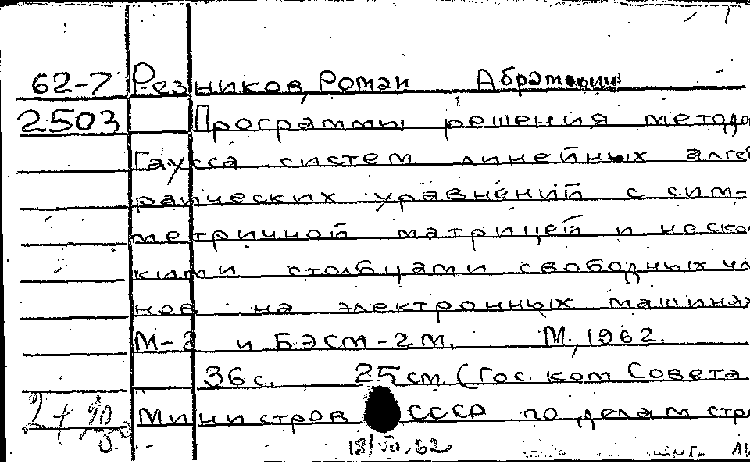 62-7 Резников, Роман Абрамович
2503 Программы решения методо
Гаусса систем линейных алге
раических уравнений с сим-
метричной матрицей и неско
кими столбцами свободных чл
нов на электронных машинах
М-2 и БЭСМ-2М. М, 1962.
36с. 25 см. (Гос. ком Совета
Министров СССР по делам стр
18/VII.62